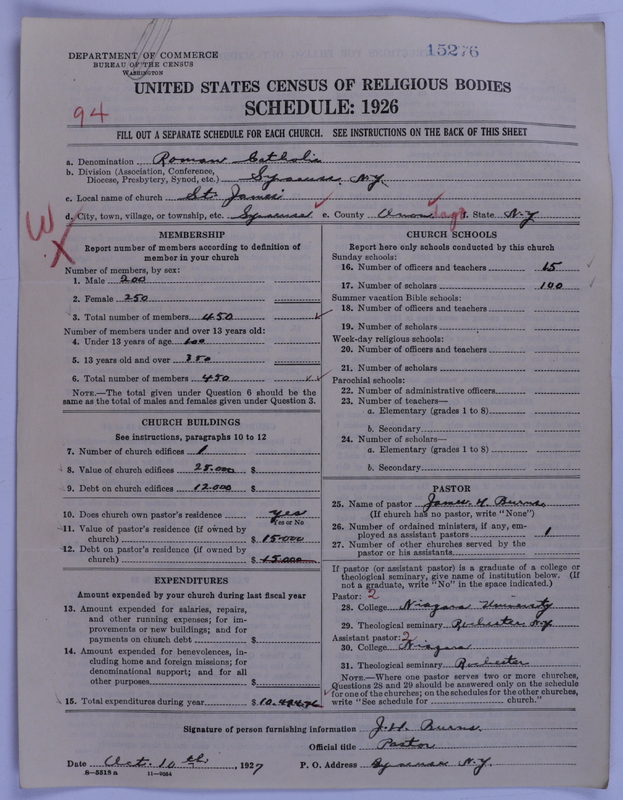 DEPARTMENT OF COMMERCE
BUREAU OF THE CENSUS
WASHINGTON
15276
UNITED STATES CENSUS OF RELIGIOUS BODIES
SCHEDULE: 1926
94
FILL OUT A SEPARATE SCHEDULE FOR EACH CHURCH. SEE INSTRUCTIONS ON THE BACK OF THIS SHEET
a. Denomination Roman Catholic
b. Division (Association, Conference,
Diocese, Presbytery, Synod, etc.) Syracuse N.Y.
c. Local name of church St. James
d. City, town, village, or township, etc. Syracuse e. County Onon f. State N.Y
W X
MEMBERSHIP
Report number of members according to definition of
member in your church
Number of members, by sex:
1. Male 200
2. Female 250
3. Total number of members 450
Number of members under and over 13 years old:
4. Under 13 years of age 100
5. 13 years old and over 350
6. Total number of members 450
NOTE.—The total given under Question 6 should be the
same as the total of males and females given under Question 3.
CHURCH BUILDINGS
See instructions, paragraphs 10 to 12
7. Number of church edifices 1
8. Value of church edifices 25.000 $
9. Debt on church edifices 12.000 $
10. Does church own pastor's residence yes
Yes or No
11. Value of pastor's residence (if owned by
church) $ 15.000
12. Debt on pastor's residence (if owned by
church) $ 15.000
EXPENDITURES
Amount expended by your church during last fiscal year
13. Amount expended for salaries, repairs,
and other running expenses; for im-
provements or new buildings; and for
payments on church debt $
14. Amount expended for benevolences, in-
cluding home and foreign missions; for
denominational support; and for all
other purposes $
15. Total expenditures during year $
CHURCH SCHOOLS
Report here only schools conducted by this church
Sunday schools:
16. Number of officers and teachers 15
17. Number of scholars 100
Summer vacation Bible schools:
18. Number of officers and teachers
19. Number of scholars
Week-day religious schools:
20. Number of officers and teachers
21. Number of scholars
Parochial schools:
22. Number of administrative officers
23. Number of teachers—
a. Elementary (grades 1 to 8)
b. Secondary
24. Number of scholars—
a. Elementary (grades 1 to 8)
b. Secondary
PASTOR
25. Name of pastor James H. Burns
(If church has no pastor, write "None")
26. Number of ordained ministers, if any, em-
ployed as assistant pastors 1
27. Number of other churches served by the
pastor or his assistants
If pastor (or assistant pastor) is a graduate of a college or
theological seminary, give name of institution below. (If
not a graduate, write "No" in the space indicated.)
Pastor: 2
28. College Niagara University
29. Theological seminary Rochester N.Y.
Assistant pastor: 2
30. College Niagara
31. Theological seminary Rochester
NOTE.—Where one pastor serves two or more churches,
Questions 28 and 29 should be answered only on the schedule
for one of the churches; on the schedules for the other churches,
write "See schedule for church."
Signature of person furnishing information J.H. Burns.
Official title Pastor
Date Oct. 10th, 1927 P. O. Address Syracuse N.Y.
8—5518a 11—9054